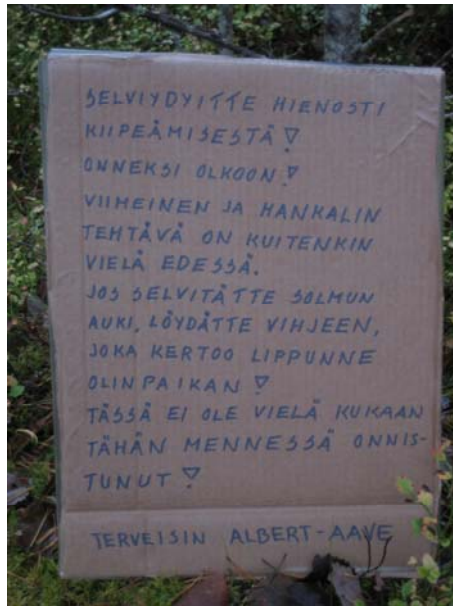 SELVIYDYITTE HIENOSTI
KIIPEÄMISESTÄ!
ONNEKSI OLKOON!
VIIMEINEN JA HANKALIN
TEHTÄVÄ ON KUITENKIN
VIELÄ EDESSÄ.
JOS SELVITÄTTE SOLMUN
AUKI, LÖYDÄTTE VIHJEEN,
JOKA KERTOO LIPPUNNE
OLINPAIKAN!
TÄSSÄ EI OLE VIELÄ KUKAAN
TÄHÄN MENNESSÄ ONNIS-
TUNUT!
TERVEISIN ALBERT-AAVE